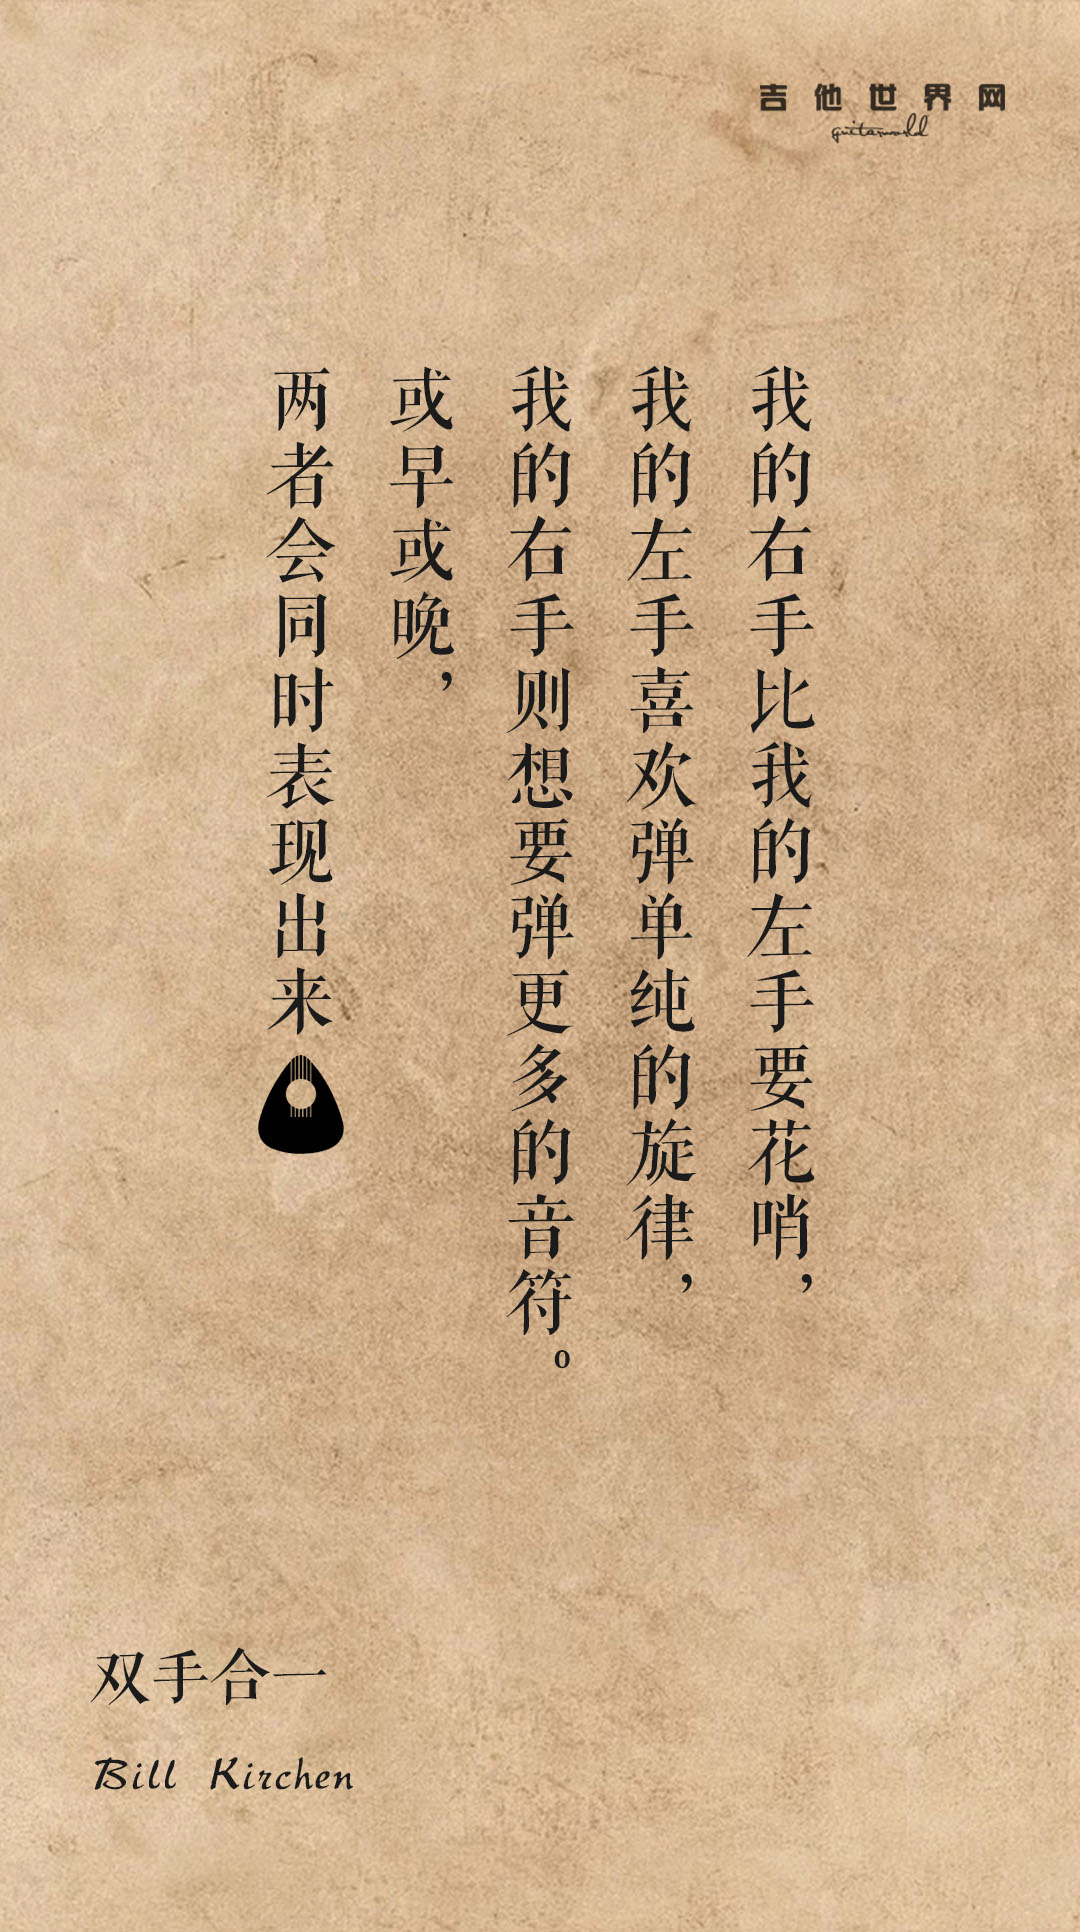 吉他世界网
guitarworld
我的右手比我的左手要花哨，
我的左手喜欢弹单纯的旋律，
我的右手则想要弹更多的音符。
或早或晚，
两者会同时表现出来
双手合一
Bill Kirchen